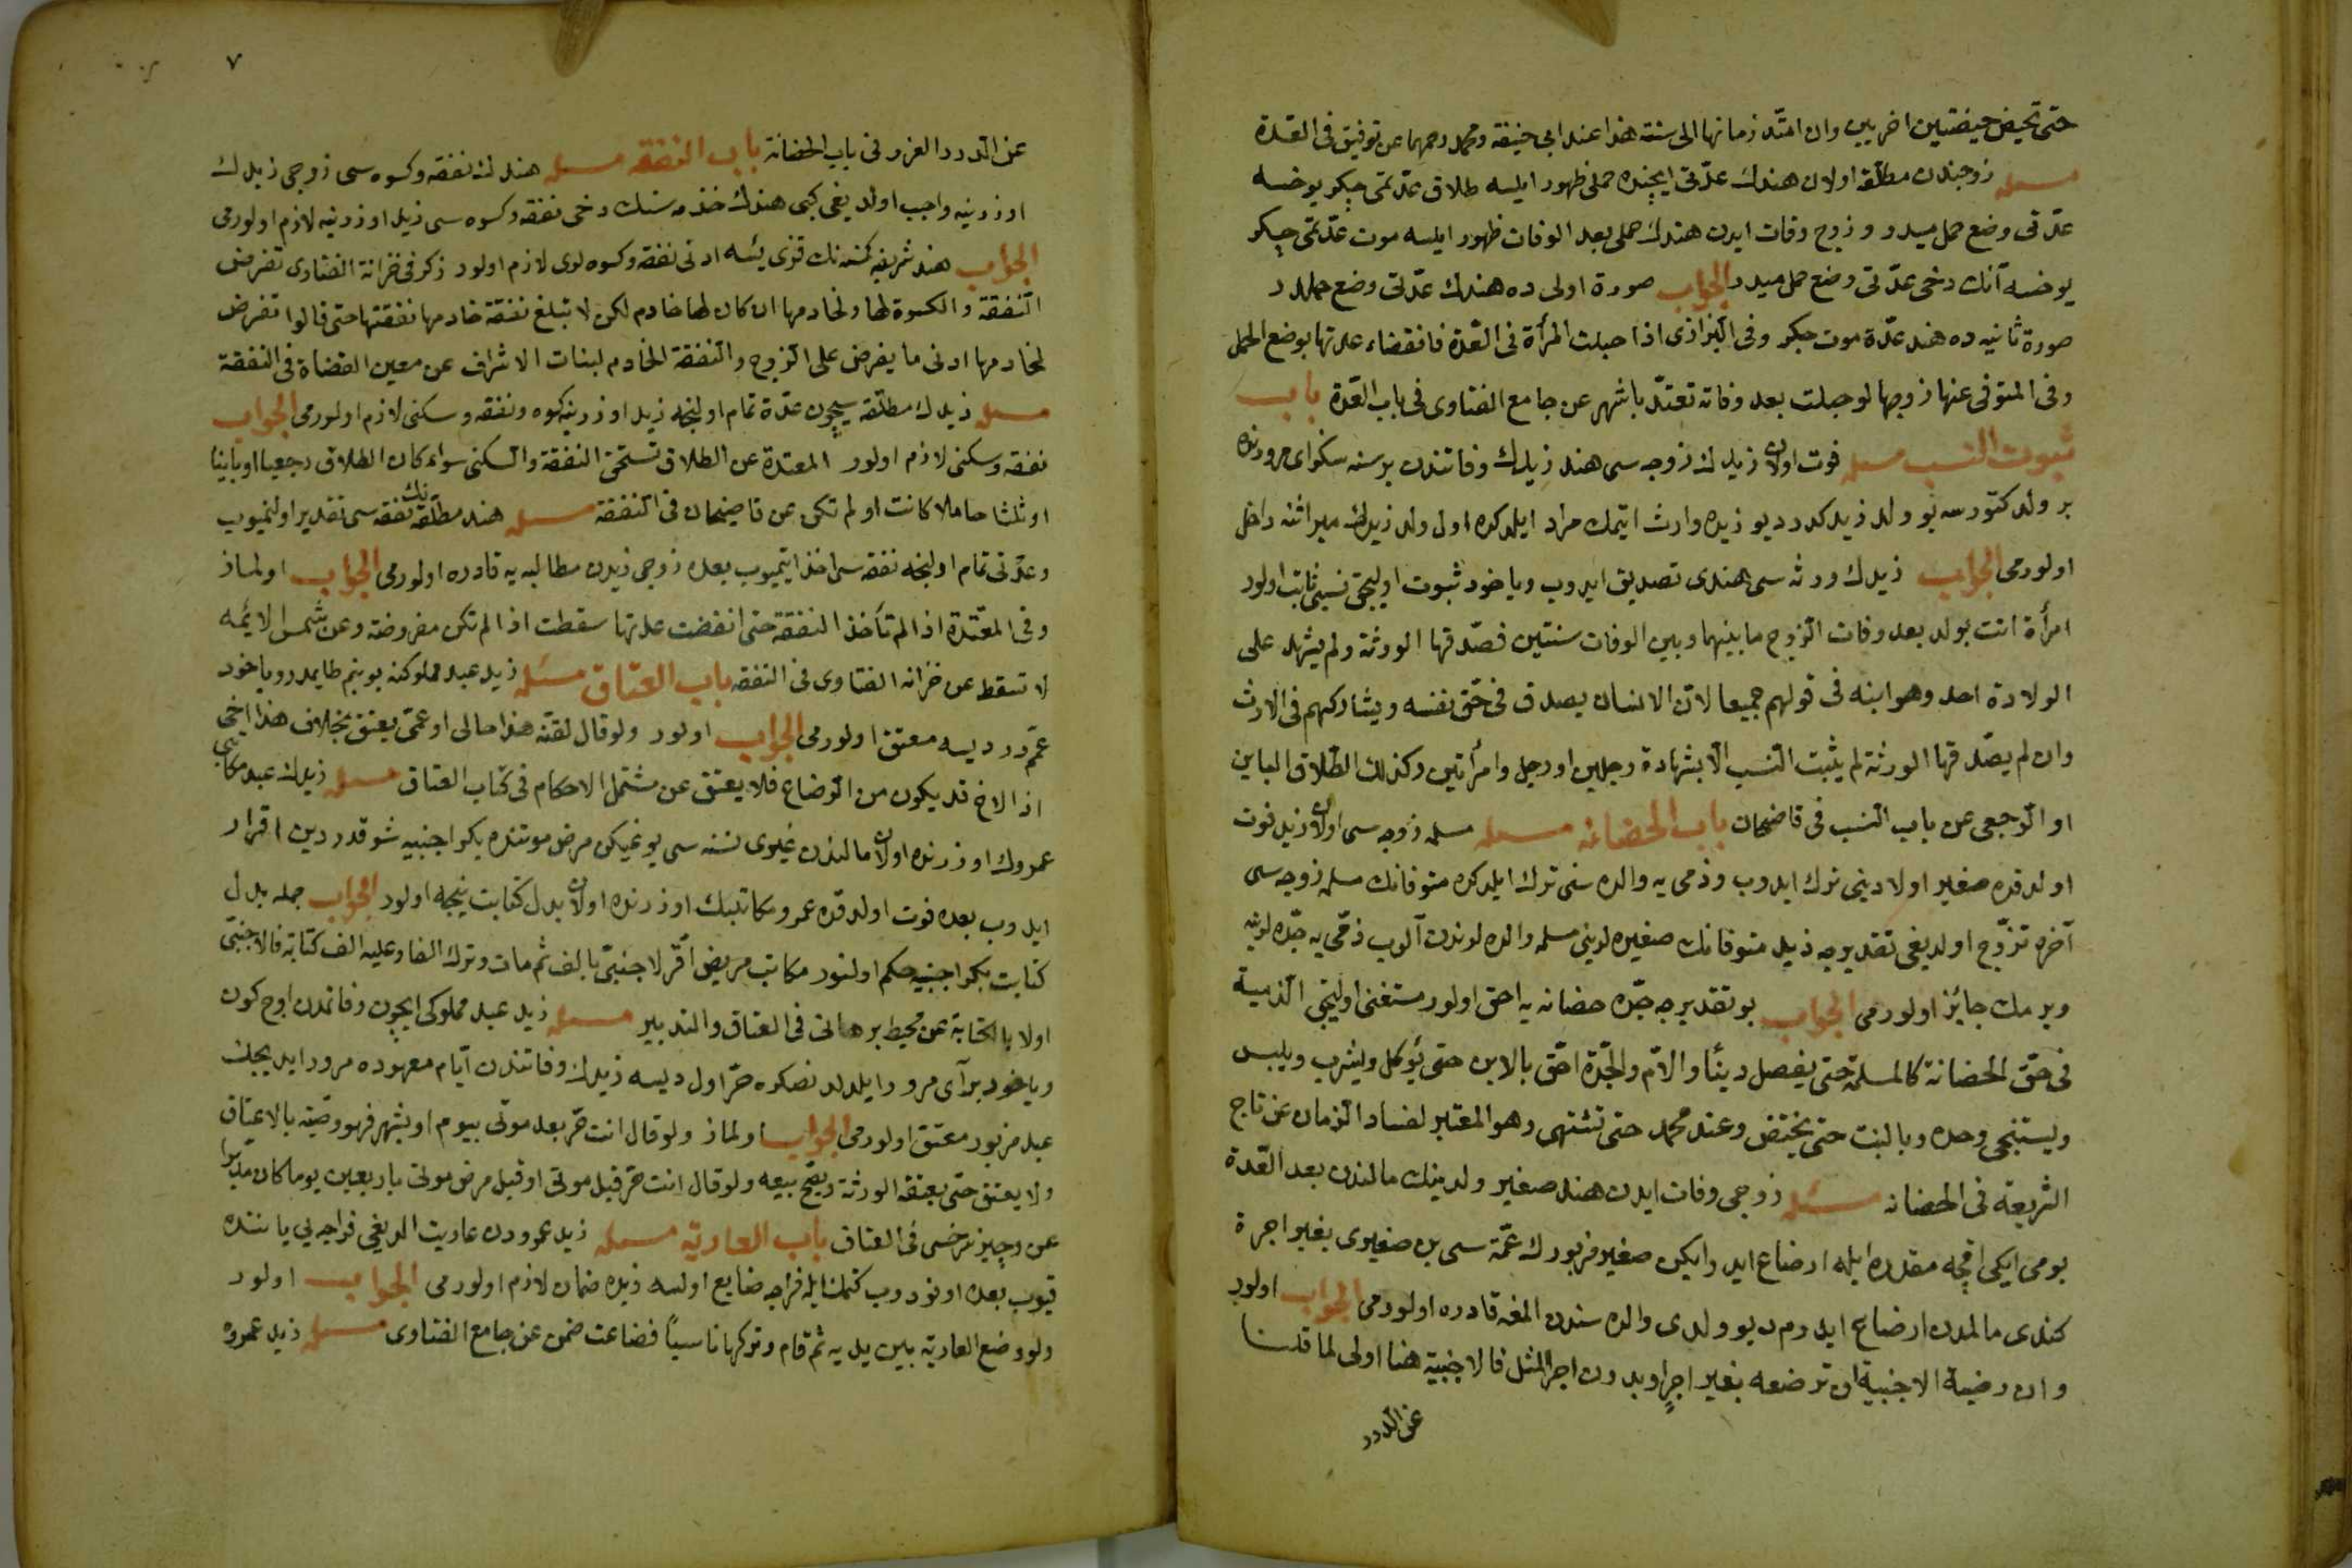 حتى تحيض حيضتين اخريين وان امتد زمانها الى سنة هذا عند ابى حنيفة ومحمد رحمهما عن توفيق فى العدّة
مسئله زوجندن مطلّقه اولان هندك عدّتى ايچنده حملى ظهور ايلسه طلاق عدّتى مى چكر يوخسه
عدّتى وضع حمل ميدر و زوج وفات ايدن هندك حملى بعد الوفات ظهور ايلسه موت عدّتى مى چكر
يوخسه آنك دخى عدّتى وضع حمل ميدر الجواب صورة اولى ده هندك عدّتى وضع حملدر
صورة ثانيه ده هند عدّة موت چكر وفى البزازى اذا حبلت المرأة فى العدّة فانقضاء عدتها بوضع الحمل
وفى المتوفى عنها زوجها لو حبلت بعد وفاته تعتدّ باشهر عن جامع الفتاوى فى باب العدّة باب
ثبوت النسب مسئله فوت اولان زيدك زوجه سى هند زيدك وفاتندن بر سنه سكز اى مرورنده
بر ولد كتورسه بو ولد زيدكدر ديو زيده وارث ايتمك مراد ايلدكده اول ولد زيدك ميراثنه داخل
اولورمى الجواب زيدك ورثه سى هندى تصديق ايدوب وياخود ثبوت اوليجق نسبى ثابت اولور
امرأة اتت بولد بعد وفات الزوج ما بينهما وبين الوفات سنتين فصدّقها الورثة ولم يشهد على
الولادة احد وهو ابنه فى قولهم جميعا لانّ الانسان يصدق فى حقّ نفسه ويشاركهم فى الارث
وان لم يصدّقها الورثة لم يثبت النسب الّا بشهادة رجلين او رجل وامرأتين وكذلك الطّلاق الباين
او الرجعى عن باب النسب فى قاضيخان باب الحضانه مسئله مسلمه زوجه سى اولان زيد فوت
اولدقده صغير اولادينى ترك ايدوب و ذمى يه والده سنى ترك ايلدكده متوفانك مسلمه زوجه سى
آخره تزوّج اولديغى تقديرجه زيد متوفانك صغيره لرينى مسلمه والده لرندن آلوب ذمّى يه جدّه لرينه
ويرمك جايز اولورمى الجواب بو تقديرجه جدّه حضانه يه احق اولور مستغنى اولنجى الذمية
فى حق الحضانة كالمسلمة حتى يفصل دينًا والامّ والجدّة احق بالابن حتى يؤكل ويشرب ويلبس
ويستنجى وحده وبالبنت حتى يختض وعند محمد حتى تشتهى وهو المعتبر لفساد الزمان عن تاج
الشريعة فى الحضانه مسئله زوجى وفات ايدن هند صغير ولدينك مالندن بعد العدّة
يومى ايكى اقچه مقدره ايله ارضاع ايدر ايكن صغير مزبورك عمّه سى بن صغيرى بغير اجرة
كندى مالمدن ارضاع ايدرم ديو ولدى والده سندن المغه قادره اولورمى الجواب اولور
وان رضية الاجنبية ان ترضعه بغير اجرٍ او بدون اجر المثل فالاجنبية هنا اولى لما قلنا
عن الدرر
٧
عن الدرر الغرر فى باب الحضانة باب النفقه مسئله هندك نفقه وكسوه سى زوجى زيدك
اوزرينه واجب اولديغى كبى هندك خذمه سنك دخى نفقه وكسوه سى زيد اوزرينه لازم اولورمى
الجواب هند شريفه كمسنه نك قزى يسه ادنى نفقه وكسوه لرى لازم اولور ذكر فى خزانة الفتاوى تفرض
النّفقة والكسوة لها ولخادمها ان كان لها خادم لكن لا تبلغ نفقة خادمها نفقتها حتى قالوا تفرض
لخادمها ادنى ما يفرض على الزوج والنّفقة الخادم لبنات الاشراف عن معين القضاة فى النفقة
مسئله زيدك مطلّقه سيچون عدّة تمام اولنجه زيد اوزرينه كسوه ونفقه وسكنى لازم اولورمى الجواب
نفقه وسكنى لازم اولور المعتدة عن الطلاق تستحق النفقة والسكنى سواء كان الطلاق رجعيا او باينا
او ثلثا حاملا كانت او لم تكن عن قاضيخان فى النّفقة مسئله هند مطلّقه نك نفقه سى تقدير اولنميوب
وعدّتى تمام اولنجه نفقه سى اخذ ايتميوب بعده زوجى زيدن مطالبه يه قادره اولورمى الجواب اولماز
وفى المعتدة اذا لم تأخذ النفقة حتى انقضت عدتها سقطت اذا لم تكن مفروضة وعن شمس الائمه
لا تسقط عن خزانه الفتاوى فى النفقه باب العتاق مسئله زيد عبد مملوكنه بو بنم طايمدر وياخود
عمّمدر ديسه معتق اولورمى الجواب اولور ولو قال لقنّه هذا خالى او عمّى يعتق بخلاف هذا اخى
اذ الاخ قد يكون من الرضاع فلا يعتق عن مشتمل الاحكام فى كتاب العتاق مسئله زيدك عبد مكاتبى
عمروك اوزرنده اولان مالندن غيرى نسنه سى يوغيكن مرض موتنده بكر اجنبيه شو قدر دين اقرار
ايدوب بعده فوت اولدقده عمرو مكاتبك اوزرنده اولان بدل كتابت نيجه اولور الجواب جمله بدل
كتابت بكر اجنبيه حكم اولنور مكاتب مريض اقرّ لاجنبىّ بالف ثم مات وترك الفا وعليه الف كتابة فالاجنبىّ
اولا بالكتابة عن محيط برهانى فى العتاق والتدبير مسئله زيد عبد مملوكى ايچون وفاتمدن اوچ كون
وياخود بر آى مرور ايلدكدنصكره حرّ اول ديسه زيدك وفاتندن ايّام معهوده مرور ايديجك
عبد مزبور معتق اولورمى الجواب اولماز ولو قال انت حرّ بعد موتى بيوم او بشهر فهو وصيّة بالاعتاق
ولا يعتق حتى يعتقه الورثة ويصحّ بيعه ولو قال انت حرّ قبل موتى او قبل مرض موتى باربعين يوما كان مدبّرا
عن وجيز سرخسى فى العتاق باب العاريّه مسئله زيد عمرودن عاريت الديغى فراجه يى ياننده
قيوب بعده اونودوب كتمك ايله فراجه ضايع اولسه زيده ضمان لازم اولورمى الجواب اولور
ولو وضع العارية بين يديه ثم قام وتركها ناسياً فضاعت ضمن عن جامع الفتاوى مسئله زيد عمروه